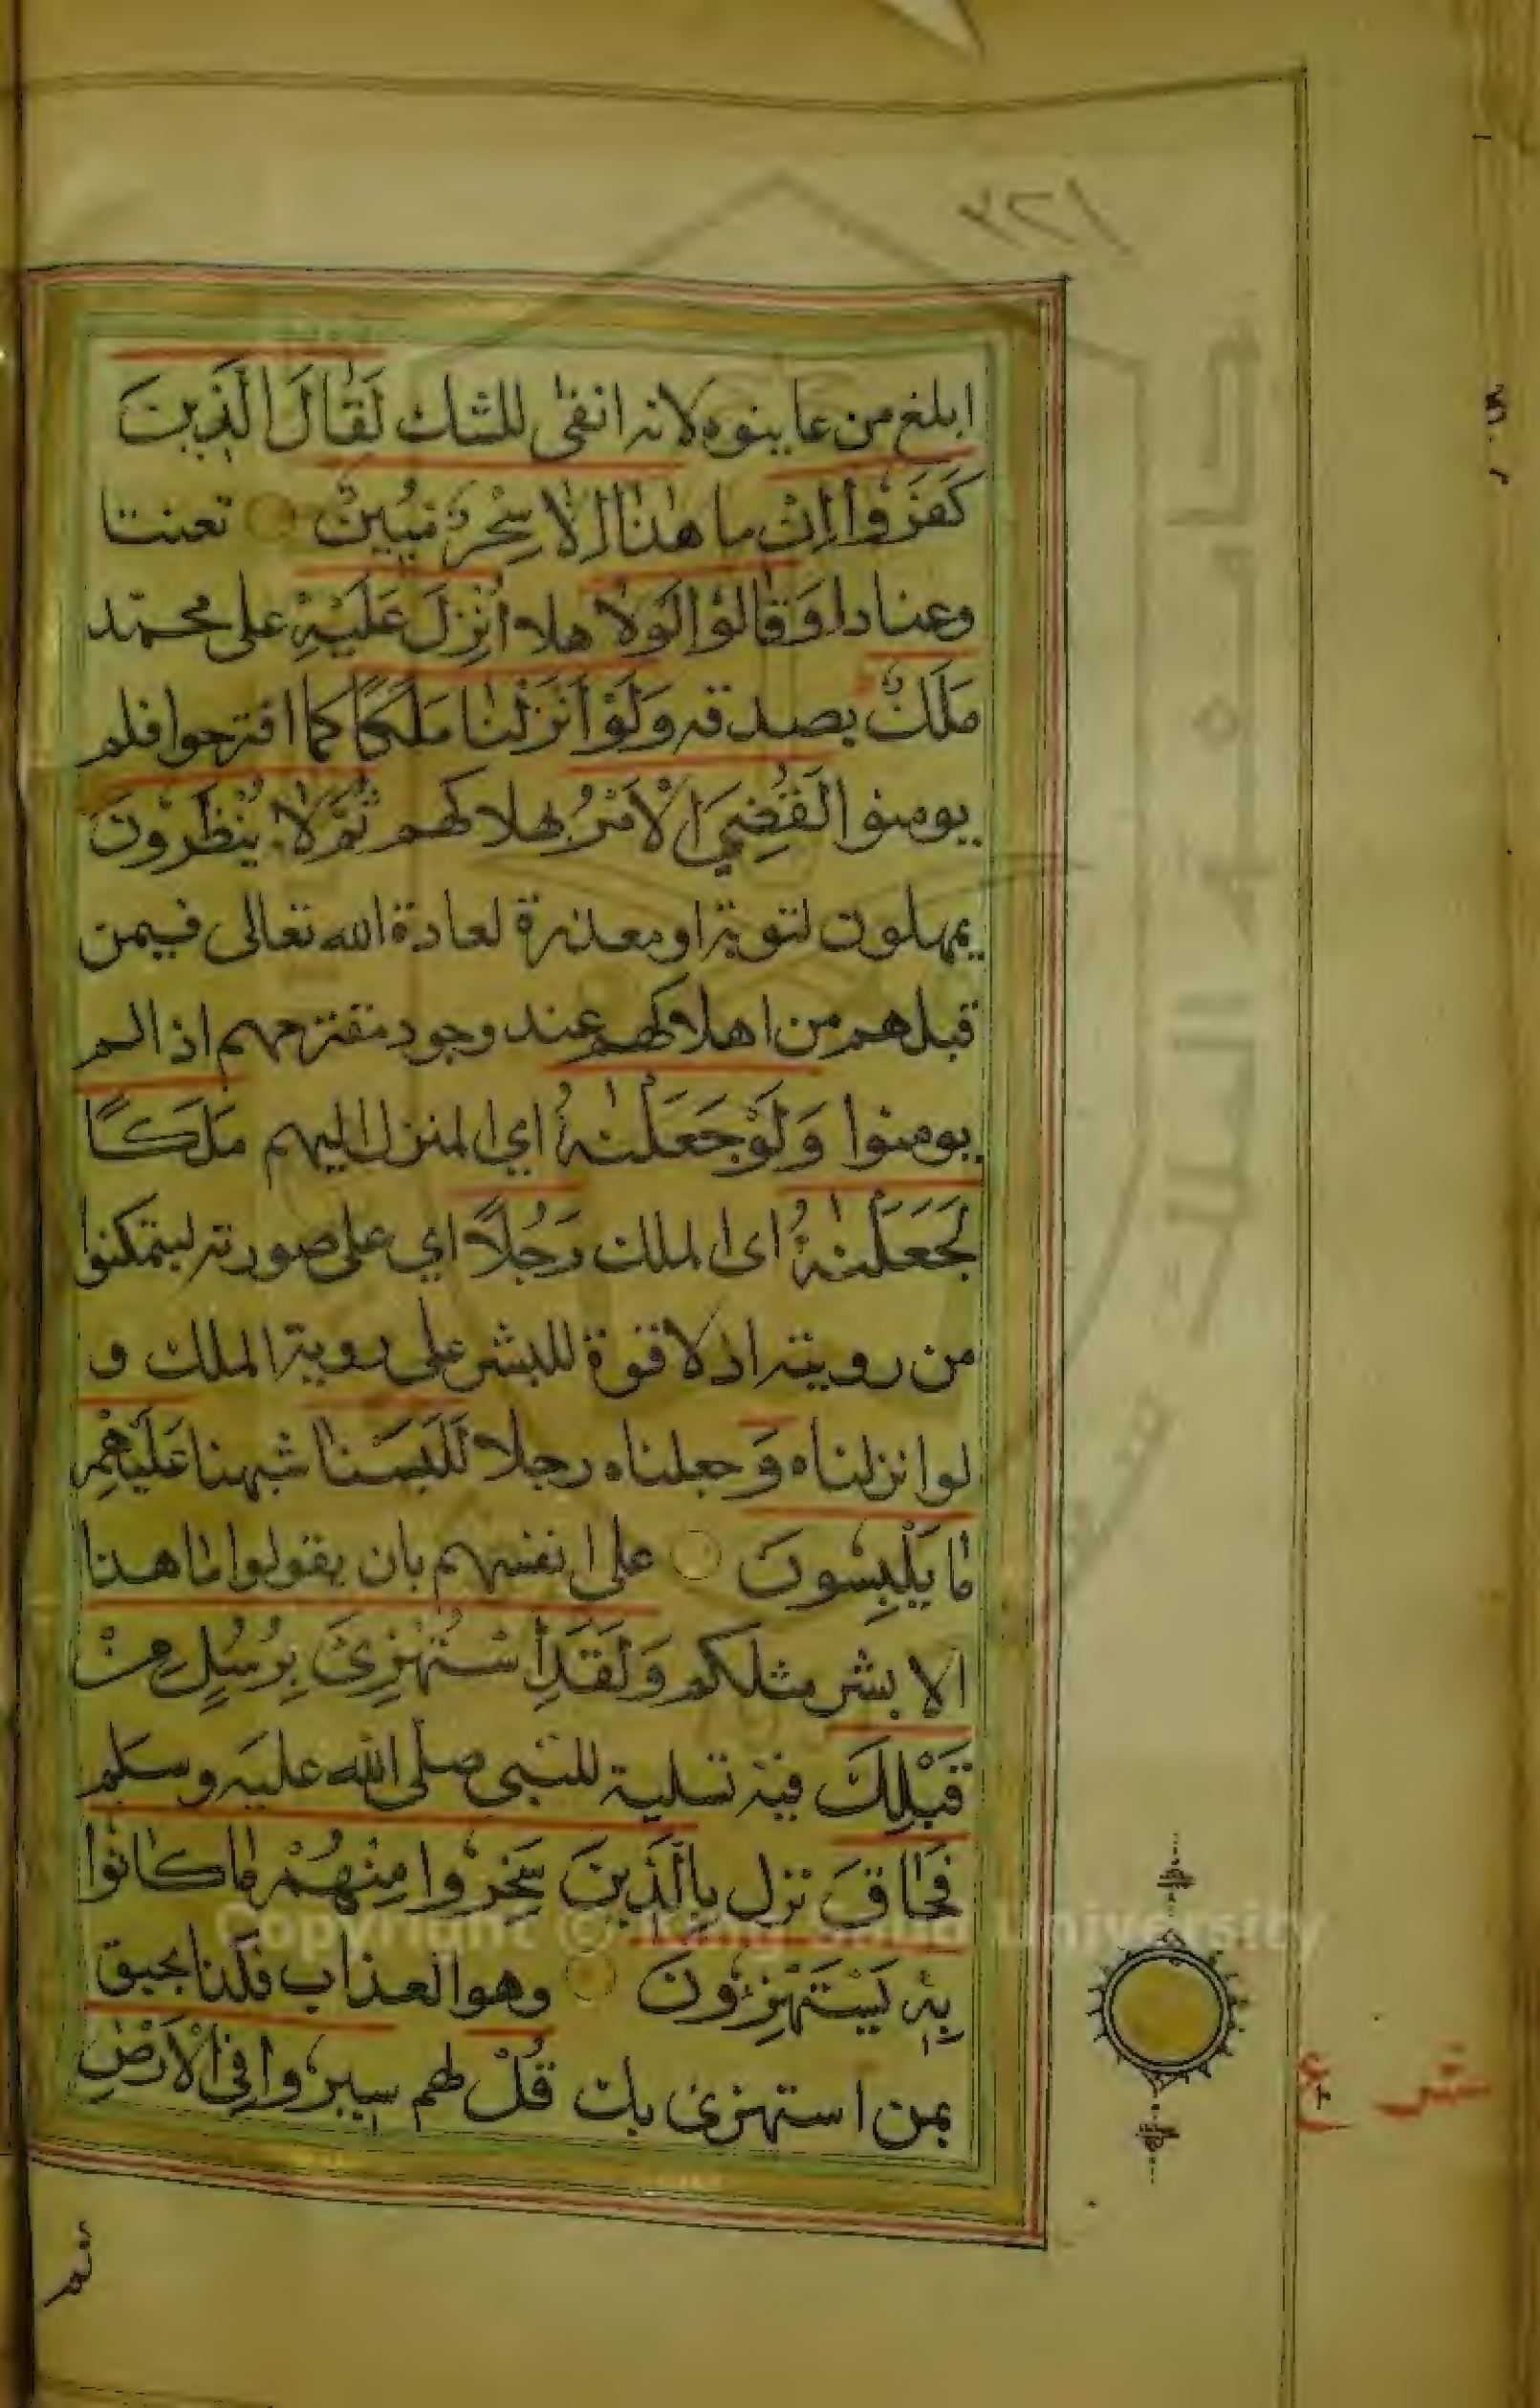 ٣٢١
ابلغ من عاينوه لانه انفى للشك لَقَالَ الَّذِينَ
كَفَرُوْا اِنْ ما هٰذَا اِلَّا سِحْرٌ مُبِيْنٌ تعنتا
وعنادا وَقَالُوْا لَوْلَا هلا اُنْزِلَ عَلَيْهِ على محمّد
مَلَكٌ يصدقه وَلَوْ اَنْزَلْنَا مَلَكًا كما اقترحوا فلم
يومنوا لَقُضِيَ الْاَمْرُ بهلاكهم ثُمَّ لَا يُنْظَرُوْنَ
يمهلون لتوبة او معذرة لعادة الله تعالى فيمن
قبلهم من اهلاكهم عند وجود مقترحهم اذا لم
يومنوا وَلَوْ جَعَلْنٰهُ اي المنزل اليهم مَلَكًا
لَجَعَلْنٰهُ اى الملك رَجُلًا اي على صورته ليتمكنوا
من رويته اذ لا قوة للبشر على روية الملك و
لو انزلناه وَ جعلناه رجلا لَلَبَسْنَا شبهنا عَلَيْهِمْ
مَا يَلْبِسُونَ على انفسهم بان يقولوا ما هذا
الا بشر مثلكم وَلَقَدِ اسْتُهْزِئَ بِرُسُلٍ مِنْ
قَبْلِكَ فيه تسلية للنبى صلى الله عليه وسلم
فَحَاقَ نزل بِالَّذِينَ سَخِرُوا مِنْهُمْ مَا كَانُوا
بِهٖ يَسْتَهْزِءُونَ وهو العذاب فكذا يحيق
بمن استهزئ بك قُلْ لهم سِيرُوا فِى الْاَرْضِ
ثم
Copyright © King Saud University
جامعة الملك سعود